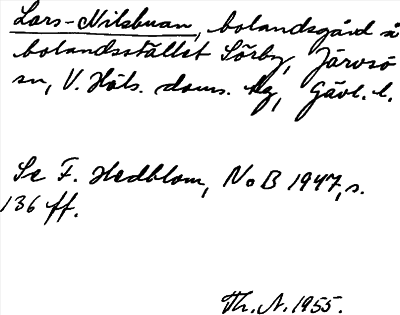 Lars-Nilsbuan, bolandsgård å
bolandsstället Sörby, Järvsö
sn, V. Häls. doms. hg, Gävl. l.
Se F. Hedblom, NoB 1947, s.
136 ff.
Th. A. 1955.